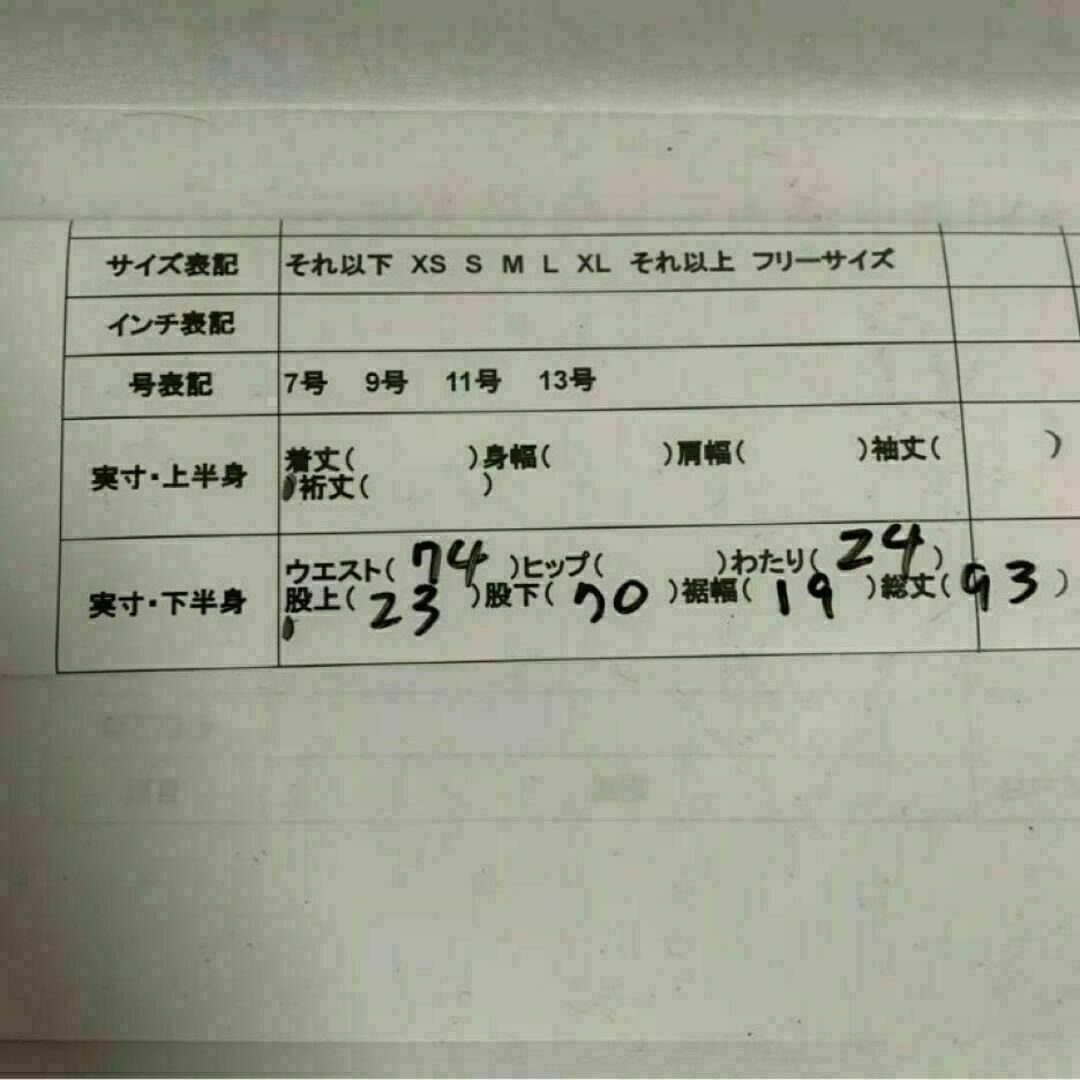 サイズ表記 それ以下 XS S M L XL それ以上 フリーサイズ
インチ表記
号表記 7号 9号 11号 13号
実寸・上半身 着丈( )身幅( )肩幅( )袖丈( )
裄丈( )
実寸・下半身 ウエスト( 74 )ヒップ( )わたり( 24 )
股上( 23 )股下( 70 )裾幅( 19 )総丈( 93 )